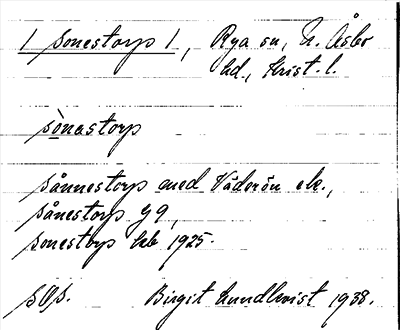 / Sonestorp /, Rya sn, N. Åsbo
hd, Krist. l.
sònastorp
Sånnestorp med Väderön ek.,
Sånestorp G 9,
Sonestorp kb 1925.
SOS. Birgit Lundkvist 1938.